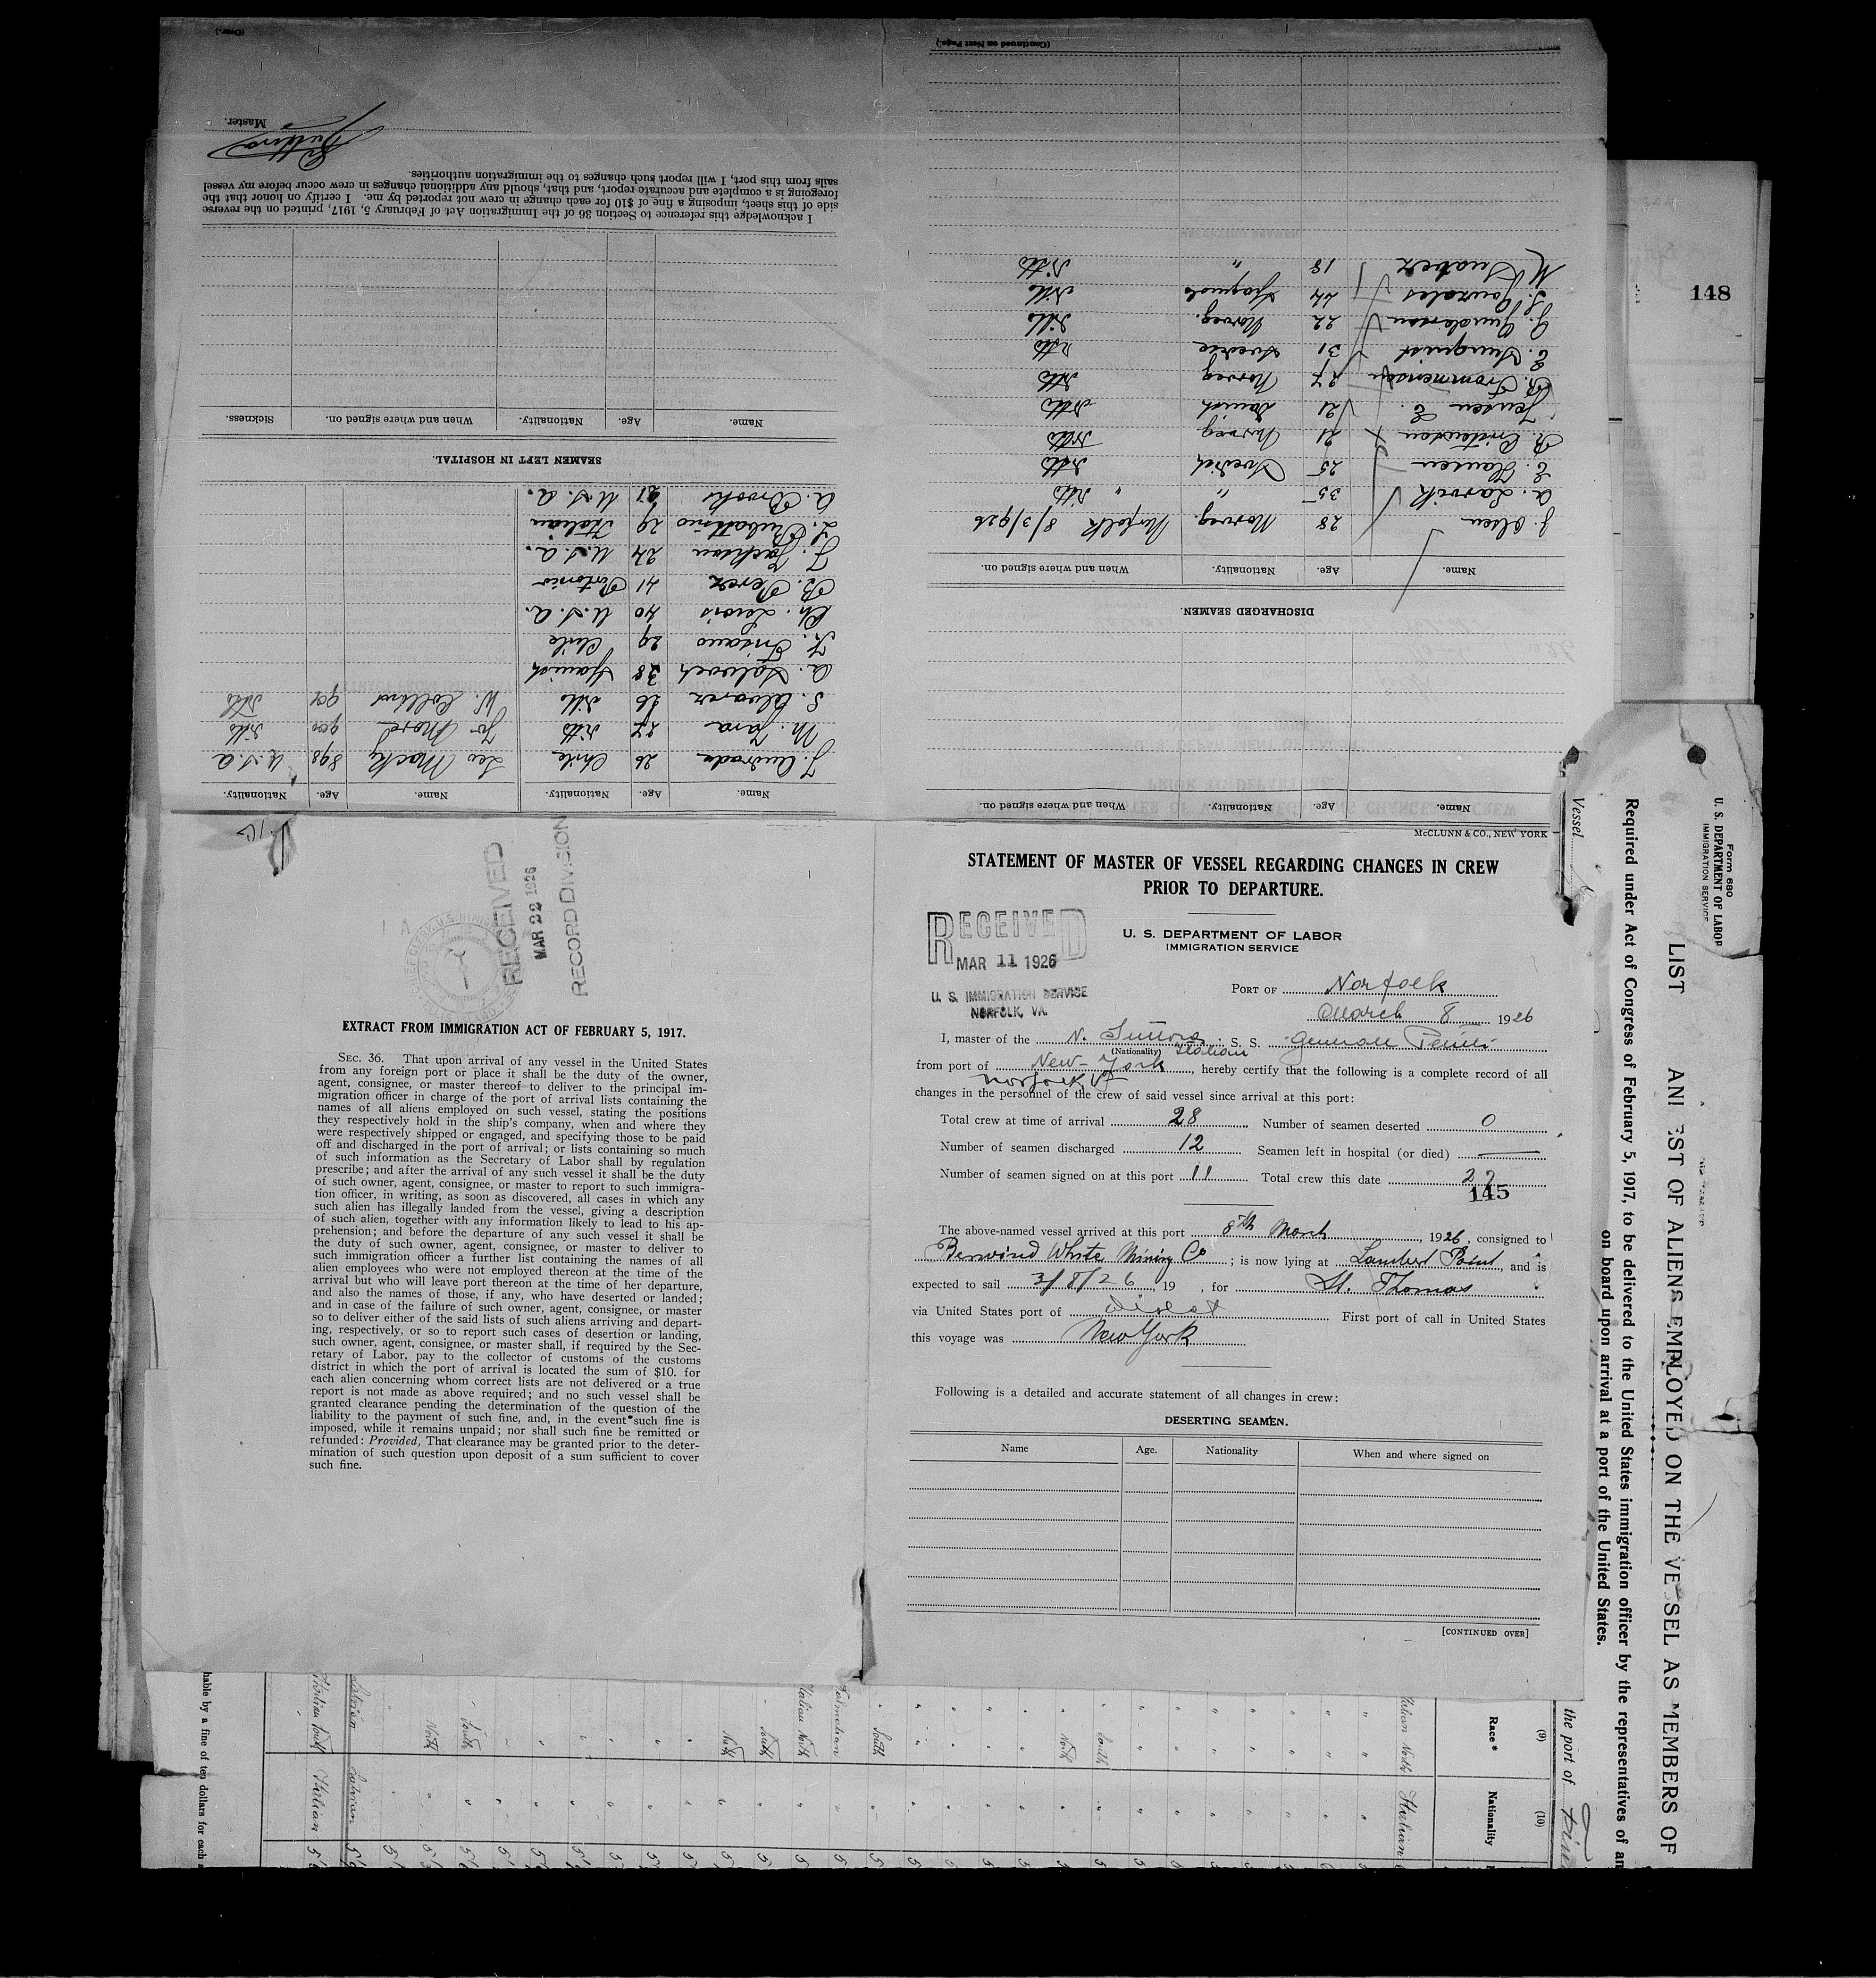 McCLUNN & CO., NEW YORK
STATEMENT OF MASTER OF VESSEL REGARDING CHANGES IN CREW
PRIOR TO DEPARTURE.
RECEIVED
MAR 11 1926
U. S. IMMIGRATION SERVICE
NORFOLK, VA.
U. S. DEPARTMENT OF LABOR
IMMIGRATION SERVICE
PORT OF Norfolk
March 8 1926
I, master of the N. S. S.
(Nationality) Italian
from port of New-York, hereby certify that the following is a complete record of all
Norfolk, Va
changes in the personnel of the crew of said vessel since arrival at this port:
Total crew at time of arrival 28 Number of seamen deserted 0
Number of seamen discharged 12 Seamen left in hospital (or died) —
Number of seamen signed on at this port 11 Total crew this date 27
145
The above-named vessel arrived at this port 8th March, 1926, consigned to
Berwind White Mining Co; is now lying at Lambert Point, and is
expected to sail 3/8/26, 19 , for St. Thomas
via United States port of direct First port of call in United States
this voyage was New York
Following is a detailed and accurate statement of all changes in crew:
DESERTING SEAMEN.
Name Age. Nationality When and where signed on
[CONTINUED OVER]
RECEIVED
MAR 22 1926
RECORD DIVISION
EXTRACT FROM IMMIGRATION ACT OF FEBRUARY 5, 1917.
SEC. 36. That upon arrival of any vessel in the United States
from any foreign port or place it shall be the duty of the owner,
agent, consignee, or master thereof to deliver to the principal im-
migration officer in charge of the port of arrival lists containing the
names of all aliens employed on such vessel, stating the positions
they respectively hold in the ship's company, when and where they
were respectively shipped or engaged, and specifying those to be paid
off and discharged in the port of arrival; or lists containing so much
of such information as the Secretary of Labor shall by regulation
prescribe; and after the arrival of any such vessel it shall be the duty
of such owner, agent, consignee, or master to report to such immigra-
tion officer, in writing, as soon as discovered, all cases in which any
such alien has illegally landed from the vessel, giving a description
of such alien, together with any information likely to lead to his ap-
prehension; and before the departure of any such vessel it shall be
the duty of such owner, agent, consignee, or master to deliver to
such immigration officer a further list containing the names of all
alien employees who were not employed thereon at the time of the
arrival but who will leave port thereon at the time of her departure,
and also the names of those, if any, who have deserted or landed;
and in case of the failure of such owner, agent, consignee, or master
so to deliver either of the said lists of such aliens arriving and depart-
ing, respectively, or so to report such cases of desertion or landing,
such owner, agent, consignee, or master shall, if required by the Sec-
retary of Labor, pay to the collector of customs of the customs
district in which the port of arrival is located the sum of $10. for
each alien concerning whom correct lists are not delivered or a true
report is not made as above required; and no such vessel shall be
granted clearance pending the determination of the question of the
liability to the payment of such fine, and, in the event such fine is
imposed, while it remains unpaid; nor shall such fine be remitted or
refunded: Provided, That clearance may be granted prior to the deter-
mination of such question upon deposit of a sum sufficient to cover
such fine.
Name. Age. Nationality. When and where signed on.
DISCHARGED SEAMEN.
Name. Age. Nationality. When and where signed on.
J. Olsen 28 Norveg. Norfolk 8/3/926
A. Larvik 35 " ditto "
E. Hansen 25 Swedish ditto
R. 21 Norveg ditto
Jensen E. 21 Danish ditto
27 Norveg ditto
E. 31 ditto
J. Gunderson 22 Norveg. ditto
J. Gonzales 24 ditto
M. Suarez 18 " ditto
(Continued on Next Page.)
Name. Age. Nationality. Name. Age. Nationality.
J. Andrade 26 Chile Leo Macky 898 U.S.A
M. Jara 27 ditto 900 ditto
S. Alvarez 26 ditto W. Collins 901 ditto
A. 38 Spanish
29 Chile
Ch. Lewis 40 U.S.A.
B. Perez 41 Portorico
J. Jackson 24 U.S.A.
29 Italian
A. Brooks 21 U.S.A.
SEAMEN LEFT IN HOSPITAL.
Name. Age. Nationality. When and where signed on. Sickness.
I acknowledge this reference to Section 36 of the Immigration Act of February 5, 1917, printed on the reverse
side of this sheet, imposing a fine of $10 for each change in crew not reported by me. I certify on honor that the
foregoing is a complete and accurate report, and that, should any additional changes in crew occur before my vessel
sails from this port, I will report such changes to the immigration authorities.
Master.
(Over.)
148
Form 680
U. S. DEPARTMENT OF LABOR
IMMIGRATION SERVICE
LIST OF ALIENS EMPLOYED ON THE VESSEL AS MEMBERS OF
Required under Act of Congress of February 5, 1917, to be delivered to the United States immigration officer by the representatives of an
on board upon arrival at a port of the United States.
Vessel
the port of
(9) (10)
Race* Nationality
Italian North Italian
South
North
South
Italian North
South
North
South
North
Latvian Latvian
Italian South Italian
hable by a fine of ten dollars for each